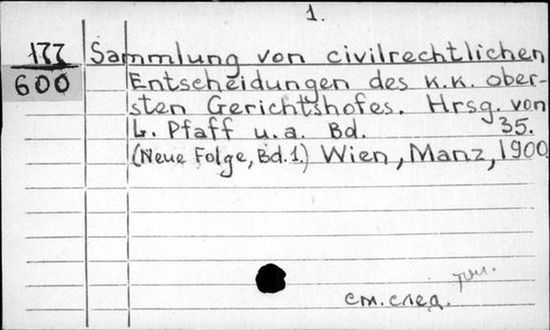 1.
177 Sammlung von civilrechtlichen
600 Entscheidungen des K.K. ober-
sten Gerichtshofes. Hrsg. von
L. Pfaff u.a. Bd. 35.
(Neue Folge, Bd. 1.) Wien, Manz, 1900
см. след.